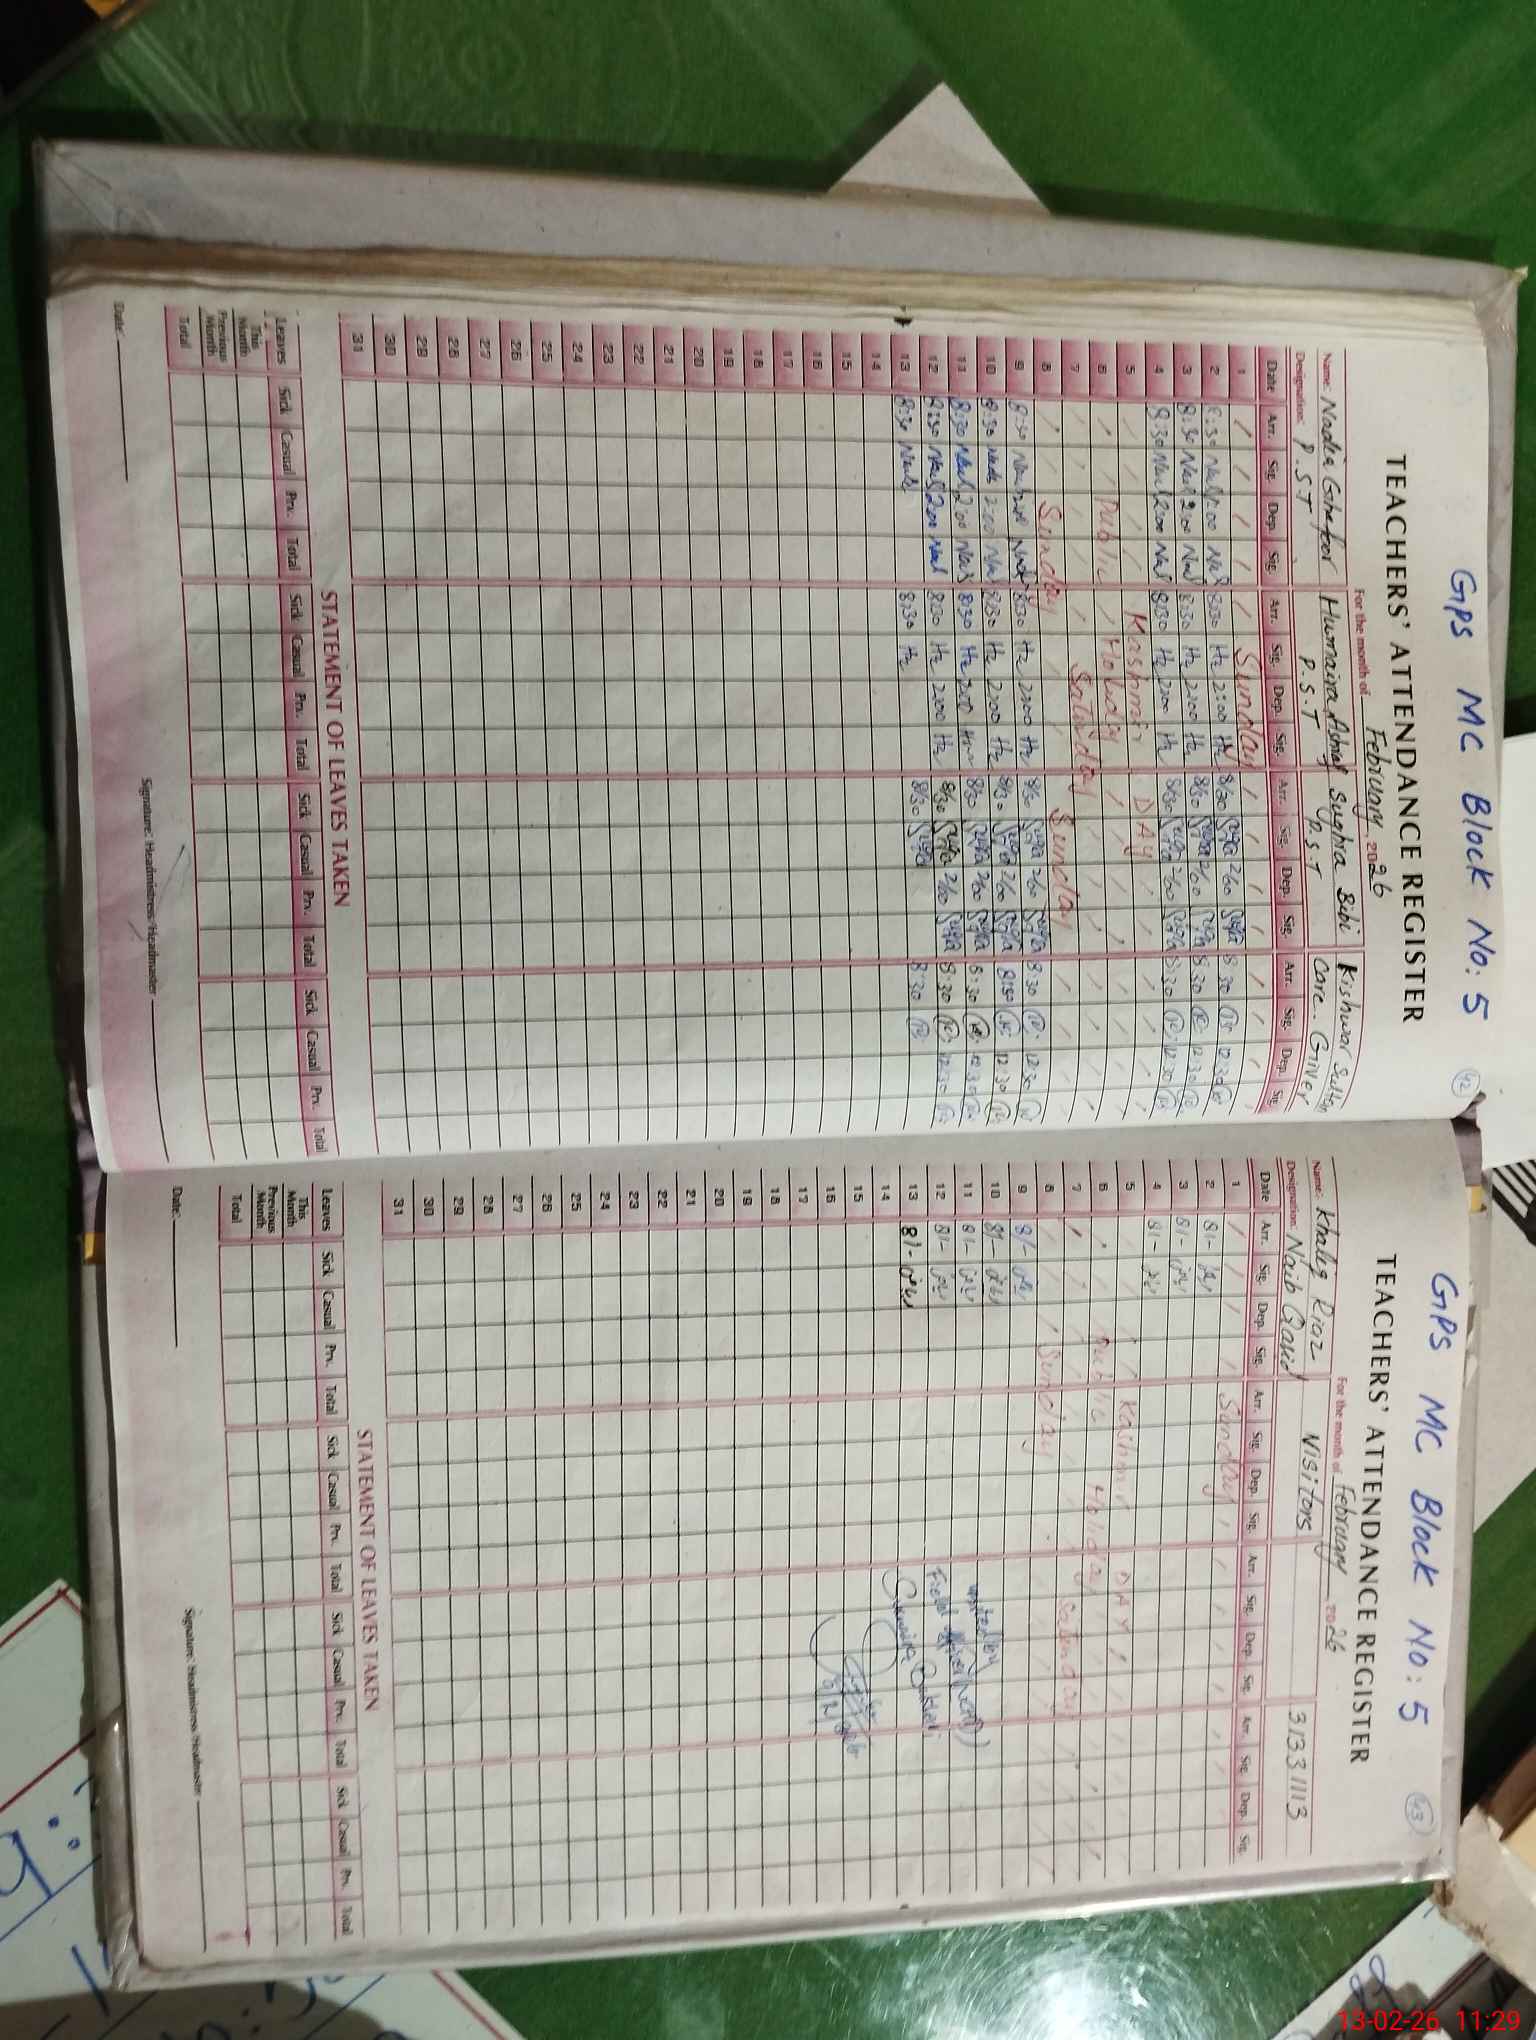 GPS MC Block No: 5
42
TEACHERS' ATTENDANCE REGISTER
For the month of February 2026
Name: Nadia Ghafoor Humaira Ashraf Sughra Bibi Kishwar Sultan
Designation: P.S.T P.S.T P.S.T Care Giver
Date Arr. Sig. Dep. Sig. Arr. Sig. Dep. Sig. Arr. Sig. Dep. Sig. Arr. Sig. Dep. Sig.
1 Sunday
2 8:30 2:00 8:30 Hz 2:00 Hz 8/30 2/00 8:30 12:30
3 8:30 2:00 8:30 Hz 2:00 Hz 8/30 2/00 8:30 12:30
4 8:30 2:00 8:30 Hz 2:00 Hz 8/30 2/00 8:30 12:30
5 Kashmir DAY
6 Public Holiday
7 Saturday
8 Sunday Sunday
9 8:30 2:00 8:30 Hz 2:00 Hz 8/30 2/00 8:30 12:30
10 8:30 2:00 8:30 Hz 2:00 Hz 8/30 2/00 8:30 12:30
11 8:30 2:00 8:30 Hz 2:00 8/30 2/00 8:30 12:30
12 8:30 2:00 8:30 Hz 2:00 Hz 8/30 2/00 8:30 12:30
13 8:30 8:30 Hz 8/30 8:30
14
15
16
17
18
19
20
21
22
23
24
25
26
27
28
29
30
31
STATEMENT OF LEAVES TAKEN
Leaves Sick Casual Prv. Total Sick Casual Prv. Total Sick Casual Prv. Total Sick Casual Prv. Total
This Month
Previous Month
Total
Date: Signature: Headmistress/Headmaster
GPS MC Block No: 5
43
TEACHERS' ATTENDANCE REGISTER
For the month of February 2026
Name: Khaliq Riaz Visitors 31331113
Designation: Naib Qasid
Date Arr. Sig. Dep. Sig. Arr. Sig. Dep. Sig. Arr. Sig. Dep. Sig. Arr. Sig. Dep. Sig.
1 Sunday
2 8/-
3 8/-
4 8/-
5 Kashmir DAY
6 Public Holiday
7 Saturday
8 Sunday
9 8/-
10 8/-
11 8/-
12 8/-
13 8/-
14
15
16
17
18
19
20
21
22
23
24
25
26
27
28
29
30
31
STATEMENT OF LEAVES TAKEN
Leaves Sick Casual Prv. Total Sick Casual Prv. Total Sick Casual Prv. Total Sick Casual Prv. Total
This Month
Previous Month
Total
Date: Signature: Headmistress/Headmaster
13-02-26 11:29